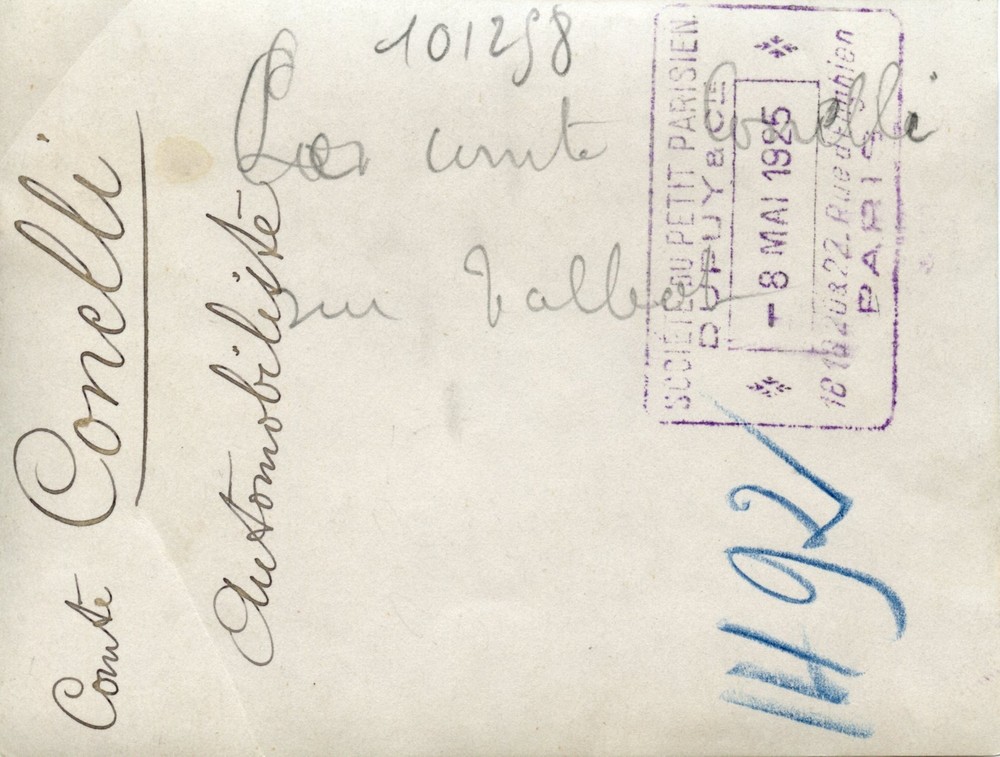 101298
Le comte Conelli
sur Talbot
Comte Conelli
Automobiliste
SOCIÉTÉ DU PETIT PARISIEN
DUPUY & CIE
- 8 MAI 1925
18 20 & 22 Rue d'Enghien
PARIS